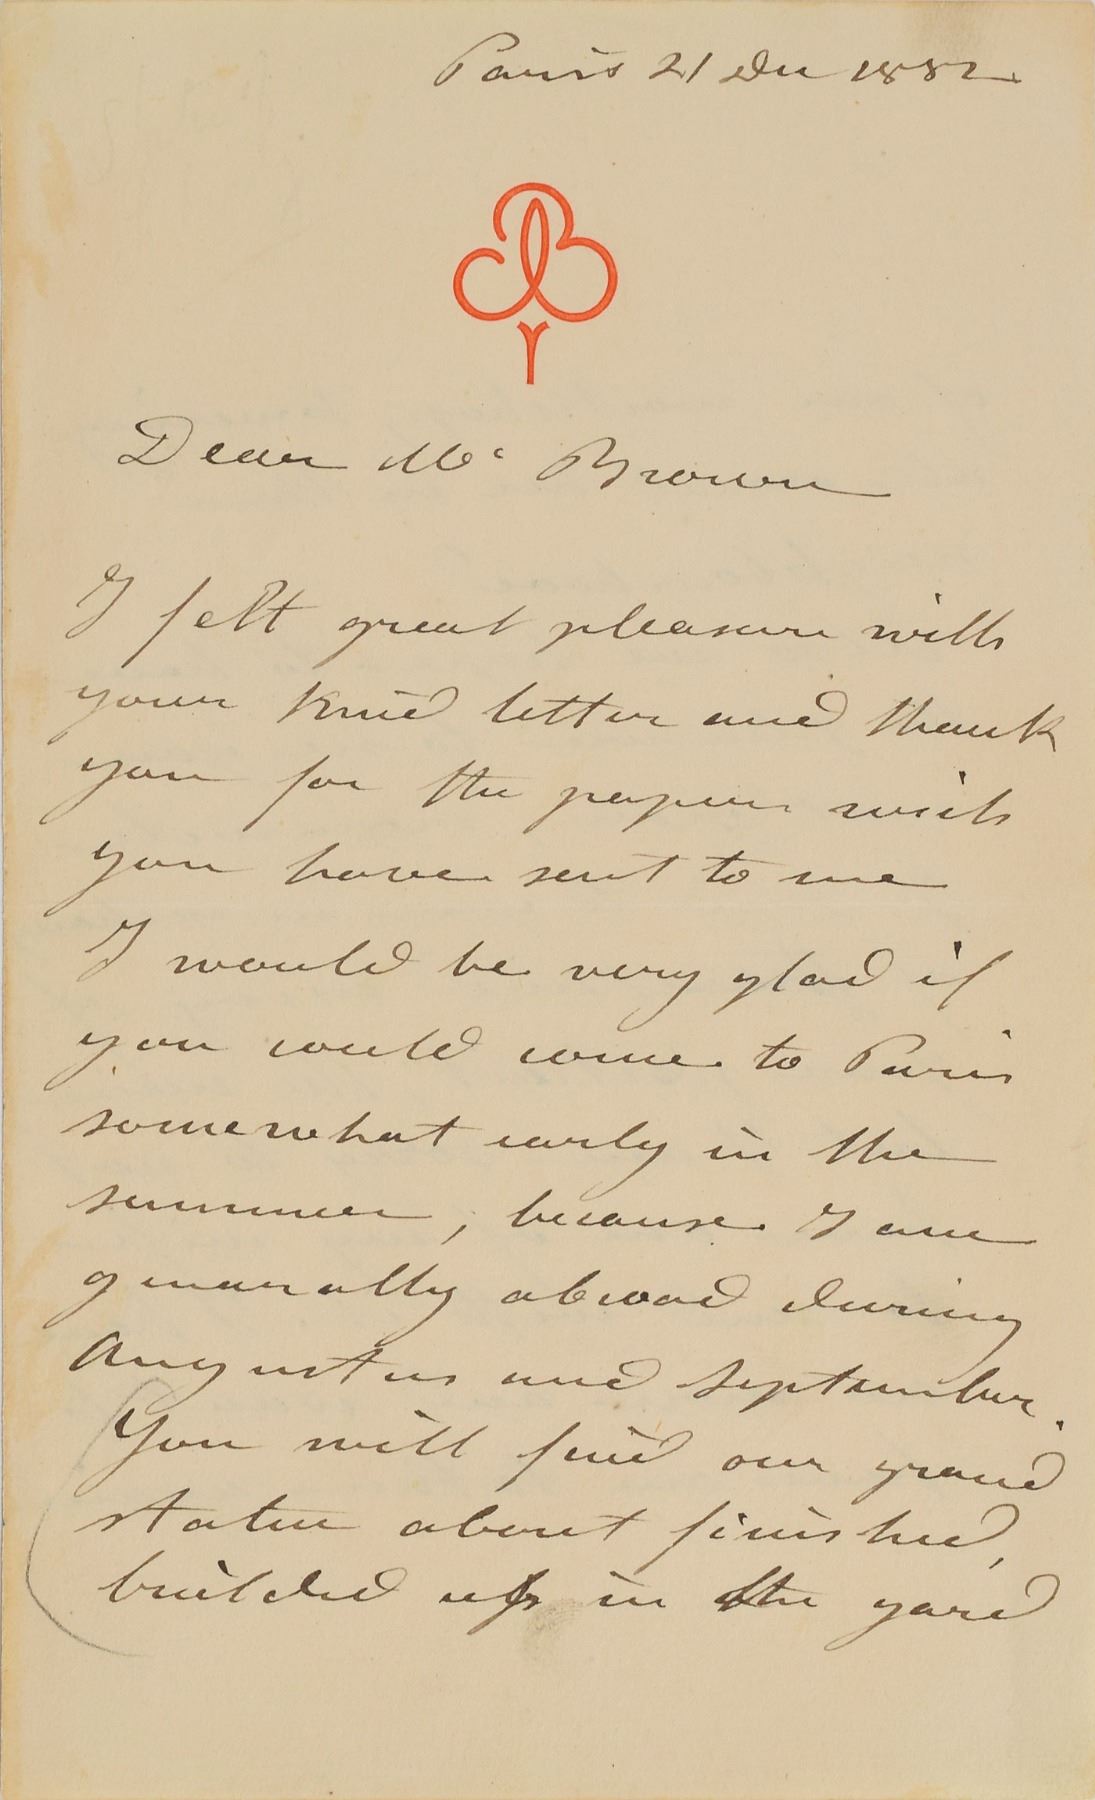 Paris 21 Dec 1882
Dear Mr Brown
I felt great pleasure with
your kind letter and thank
you for the papers wich
you have sent to me
I would be very glad if
you could come to Paris
somewhat early in the
summer, because I am
generally abroad during
Augustus and September.
You will find our grand
statue about finished,
builded up in the yard